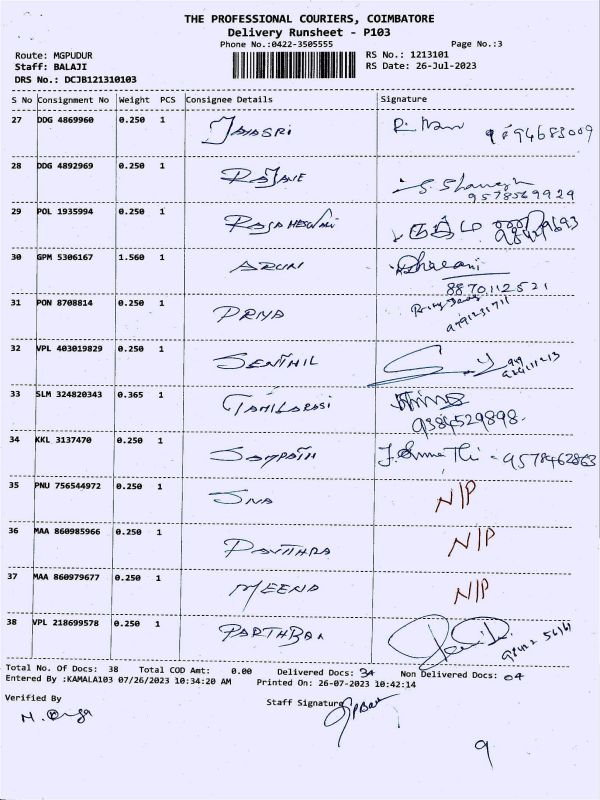 THE PROFESSIONAL COURIERS, COIMBATORE
Delivery Runsheet - P103
Phone No.:0422-3505555 Page No.:3
Route: MGPUDUR RS No.: 1213101
Staff: BALAJI RS Date: 26-Jul-2023
DRS No.: DCJB121310103
S No Consignment No Weight PCS Consignee Details Signature
27 DDG 4869960 0.250 1 JAYASRI
28 DDG 4892969 0.250 1
9578569929
29 POL 1935994 0.250 1
30 GPM 5306167 1.560 1 ARUN Dharani
8870112521
31 PON 8708814 0.250 1 PRIYA
32 VPL 403019829 0.250 1 SENTHIL
33 SLM 324820343 0.365 1 TAMILARASI
9384529898
34 KKL 3137470 0.250 1 SAMPATH 9578462863
35 PNU 756544972 0.250 1 N/P
36 MAA 860985966 0.250 1 PAVITHRA N/P
37 MAA 860979677 0.250 1 MEENA N/P
38 VPL 218699578 0.250 1
Total No. Of Docs: 38 Total COD Amt: 0.00 Delivered Docs: 34 Non Delivered Docs: 04
Entered By :KAMALA103 07/26/2023 10:34:20 AM Printed On: 26-07-2023 10:42:14
Verified By Staff Signature
9